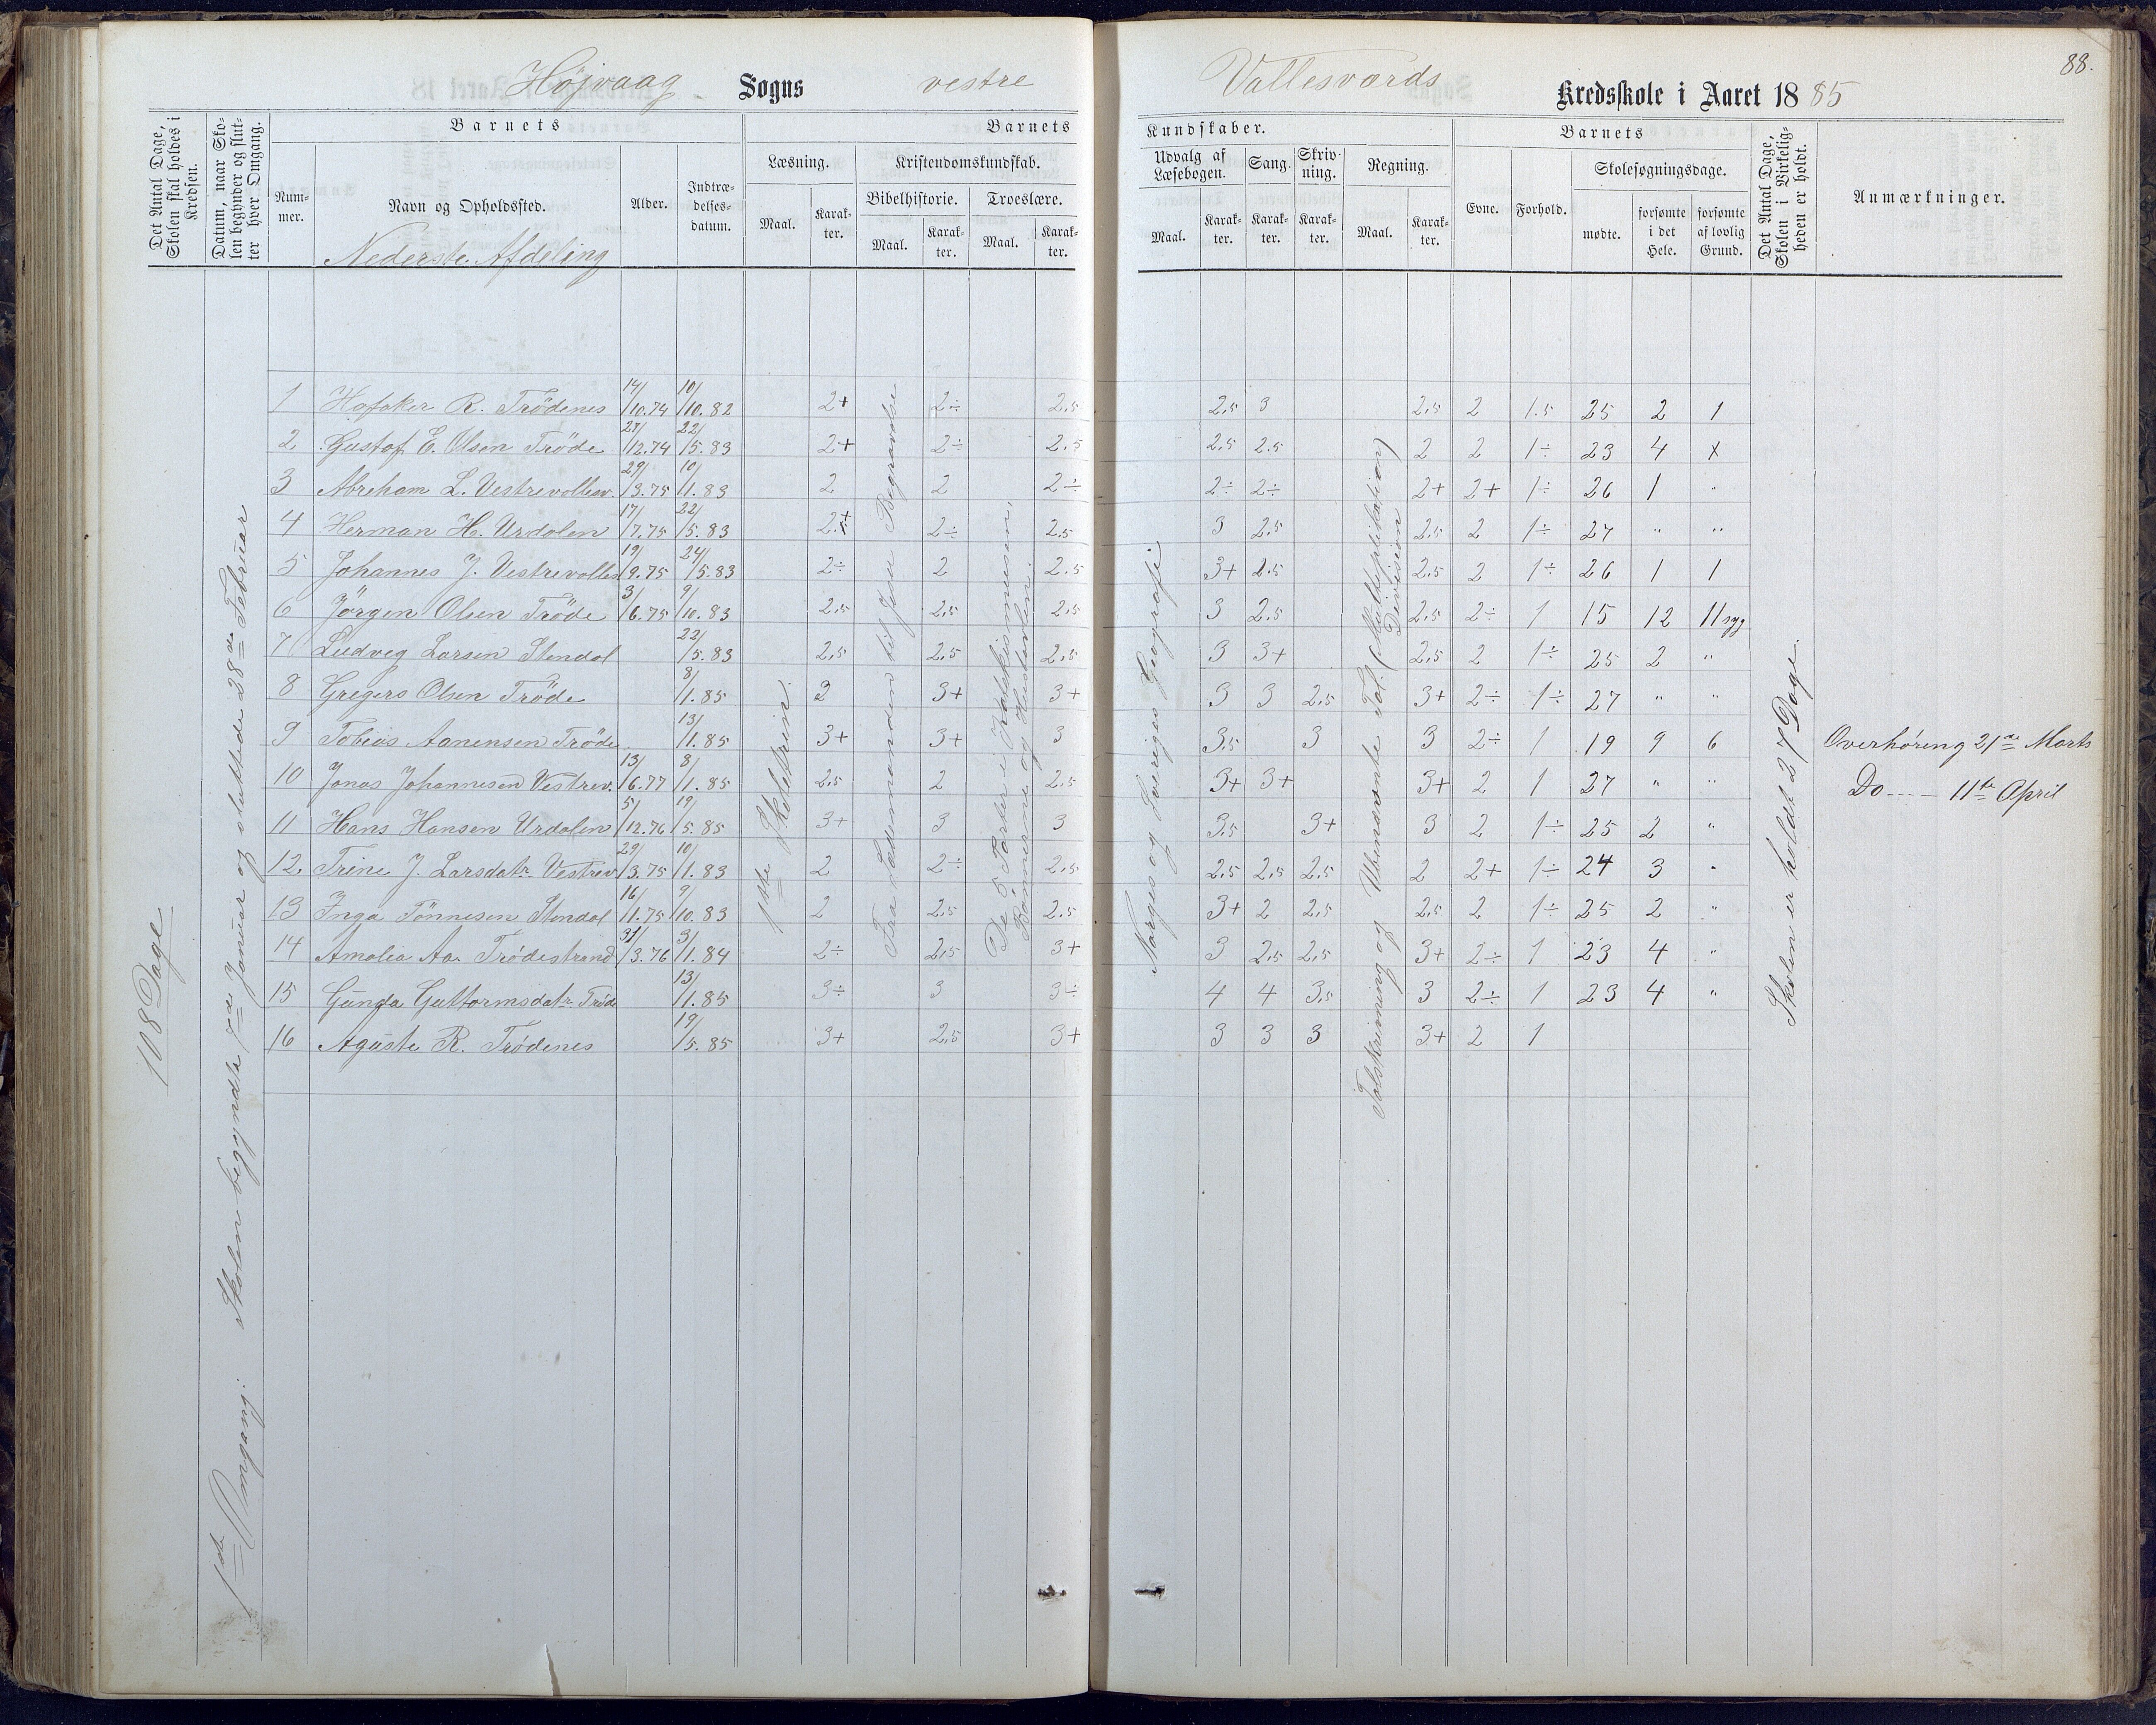 88.
Højvaag Sogns vestre Vallesværds Kredsskole i Aaret 1885
Det Antal Dage, Skolen skal holdes i Kredsen.
Datum, naar Skolen begynder og slutter hver Omgang.
Barnets
Nummer.
Navn og Opholdssted.
Alder.
Indtrædelsesdatum.
Nederste Afdeling
Barnets Kundskaber.
Læsning.
Maal. Karakter.
Kristendomskundskab.
Bibelhistorie.
Maal. Karakter.
Troeslære.
Maal. Karakter.
Udvalg af Læsebogen.
Maal. Karakter.
Sang.
Karakter.
Skrivning.
Karakter.
Regning.
Maal. Karakter.
Barnets
Evne. Forhold.
Skolesøgningsdage.
mødte. forsømte i det Hele. forsømte af lovlig Grund.
Det Antal Dage, Skolen i Virkeligheden er holdt.
Anmærkninger.
108 Dage
1ste Omgang. Skolen begyndte 7de Januar og sluttede 28de Februar
1ste Skoletrin.
Fra Sædemanden til Jesu Begravelse
De 5 Parter i Katekismusen, Bønnerne og Hustavlen.
Norges og Sveriges Geografi
Talskrivning og Ubenævnte Tal. (Multiplikation) Devision
Skolen er holdt 27 Dage
1 R. Trödenes 14/10.74 10/10.82 2+ 2÷ 2.5 2.5 3 2.5 2 1.5 25 2 1
2 Gustaf E. Olsen Tröde 27/12.74 22/5.83 2+ 2÷ 2.5 2.5 2.5 2 2 1÷ 23 4 x
3 Abreham L. Vestrevollesv. 29/3.75 10/1.83 2 2 2÷ 2÷ 2÷ 2+ 2+ 1÷ 26 1 "
4 Herman H. Urdalen 17/7.75 22/5.83 2.5+ 2÷ 2.5 3 2.5 2.5 2 1÷ 27 " "
5 Johannes J. Vestrevolles 19/9.75 24/5.83 2÷ 2 2.5 3+ 2.5 2.5 2 1÷ 26 1 1
6 Jörgen Olsen Tröde 3/6.75 9/10.83 2.5 2.5 2.5 3 2.5 2.5 2÷ 1 15 12 11 syg
7 Ludveg Larsen Stendal 22/5.83 2.5 2.5 2.5 3 3+ 2.5 2 1÷ 25 2 "
8 Gregers Olsen Tröde 8/1.85 3 3+ 3+ 3 3 2.5 3+ 2÷ 1÷ 27 " "
9 Tobias Aanensen Tröde 13/1.85 3+ 3+ 3 3.5 3 3 2÷ 1 19 9 6
10 Jonas Johannesen Vestrev. 13/6.77 8/1.85 2.5 2 2.5 3+ 3+ 3+ 2 1 27 " "
11 Hans Hansen Urdalen 5/12.76 19/5.85 3+ 3 3 3.5 3+ 3 2 1÷ 25 2 "
12. Trine J. Larsdatr. Vestrev 29/3.75 10/1.83 2 2÷ 2.5 2.5 2.5 2.5 2 2+ 1÷ 24 3 "
13 Inga Tönnesen Stendal 16/11.75 9/10.83 2 2.5 2.5 3+ 2 2.5 2.5 2 1÷ 25 2 "
14 Amalia Aa. Trödestrand 31/3.76 3/1.84 2÷ 2.5 3+ 3 2.5 2.5 3+ 2÷ 1 23 4 "
15 Gunda Guttormsdatr. Tröde 13/1.85 3÷ 3 3÷ 4 4 3.5 3 2÷ 1 23 4 "
16 Aguste R. Trödenes 19/5.85 3+ 2.5 3+ 3 3 3 3+ 2 1
Overhöring 21de Marts
Do ---- 11te April